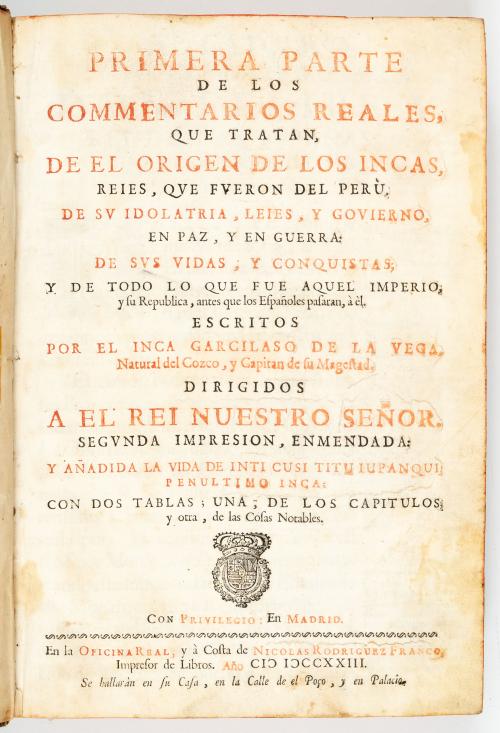 PRIMERA PARTE
DE LOS
COMMENTARIOS REALES,
QUE TRATAN,
DE EL ORIGEN DE LOS INCAS,
REIES, QVE FVERON DEL PERÙ,
DE SV IDOLATRIA, LEIES, Y GOVIERNO,
EN PAZ, Y EN GUERRA:
DE SVS VIDAS, Y CONQUISTAS,
Y DE TODO LO QUE FUE AQUEL IMPERIO,
y su Republica, antes que los Españoles pasaran, à èl.
ESCRITOS
POR EL INCA GARCILASO DE LA VEGA,
Natural del Cozco, y Capitan de su Magestad.
DIRIGIDOS
A EL REI NUESTRO SEÑOR.
SEGVNDA IMPRESION, ENMENDADA:
Y AÑADIDA LA VIDA DE INTI CUSI TITU IUPANQUI,
PENULTIMO INCA:
CON DOS TABLAS; UNA, DE LOS CAPITULOS,
y otra, de las Cosas Notables.
CON PRIVILEGIO: En MADRID.
En la OFICINA REAL, y à Costa de NICOLAS RODRIGUEZ FRANCO,
Impresor de Libros. Año CIƆ IƆCCXXIII.
Se hallaràn en su Casa, en la Calle de el Poço, y en Palacio.